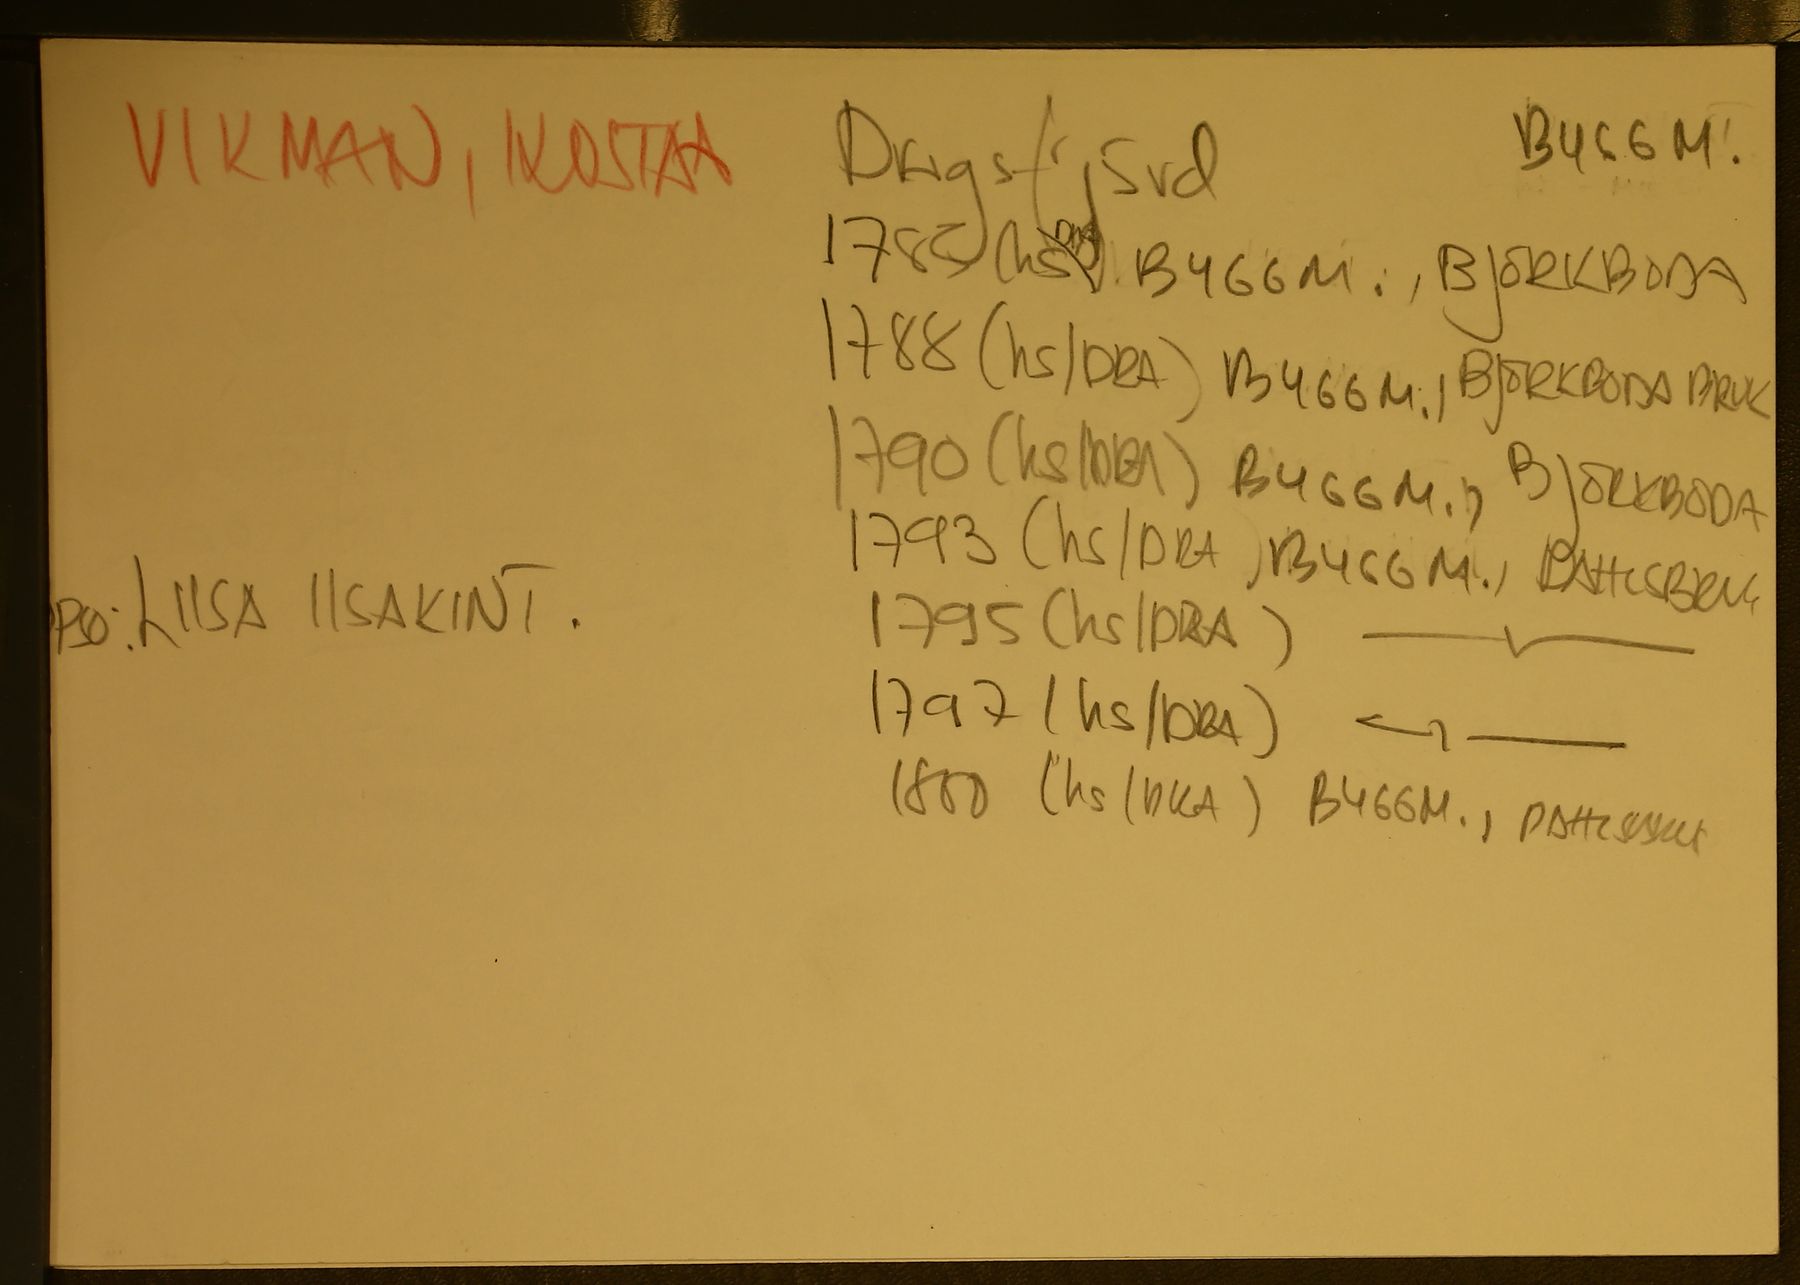 VIKMAN, KUSTAA
Dragsfjärd
BYGGM.
1785 (hs/DRA) BYGGM., BJÖRKBODA
1788 (hs/DRA) BYGGM., BJÖRKBODA BRUK
1790 (hs/DRA) BYGGM., BJÖRKBODA
1793 (hs/DRA) BYGGM., DAHLSBRUK
PSO: LIISA IISAKINT.
1795 (hs/DRA) —〃—
1797 (hs/DRA) —〃—
1800 (hs/DRA) BYGGM., DAHLSBRUK